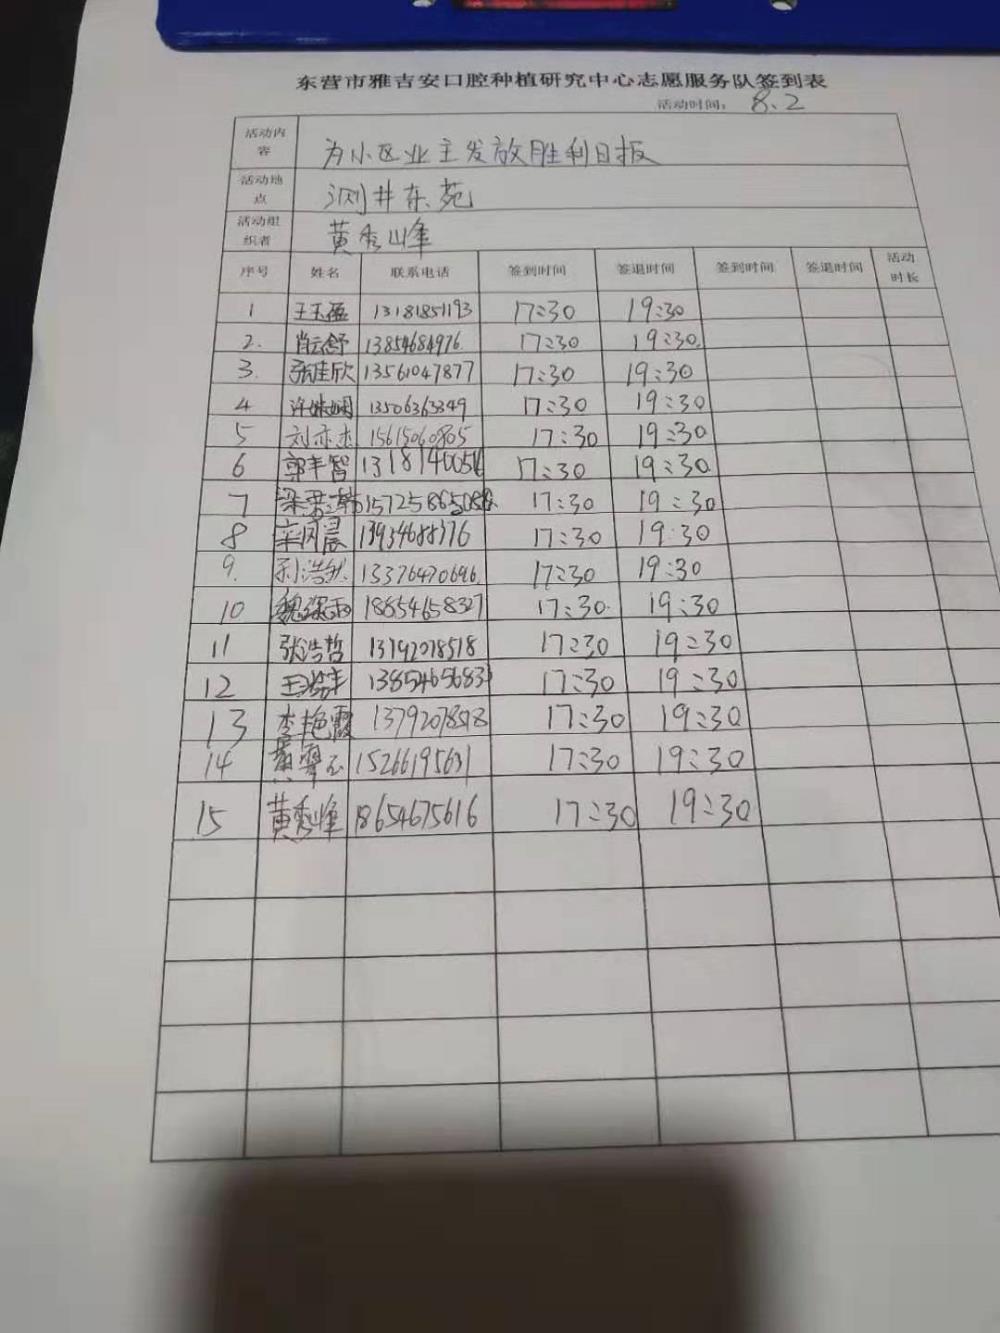 东营市雅吉安口腔种植研究中心志愿服务队签到表
活动时间： 8.2
活动内容 为小区业主发放胜利日报
活动地点 测井东苑
活动组织者 黄秀峰
序号 姓名 联系电话 签到时间 签退时间 签到时间 签退时间 活动时长
1 王玉蕴 13181851193 17:30 19:30
2. 肖云舒 13854684976. 17:30 19:30.
3. 张佳欣 13561047877 17:30 19:30
4 许姝娴 13506363349 17:30 19:30
5 刘亦杰 15615060805 17:30 19:30
6 郭丰智 1318140051 17:30 19:30
7 17:30 19:30
8 13934688376 17:30 19:30
9. 刘浩然 13376470696. 17:30 19:30
10 魏深雨 18854658327 17:30. 19:30
11 张浩哲 13792078518 17:30 19:30
12 13854656831 17:30 19:30
13 李艳霞 17:30 19:30
14 15266195631 17:30 19:30
15 黄秀峰 18654675616 17:30 19:30